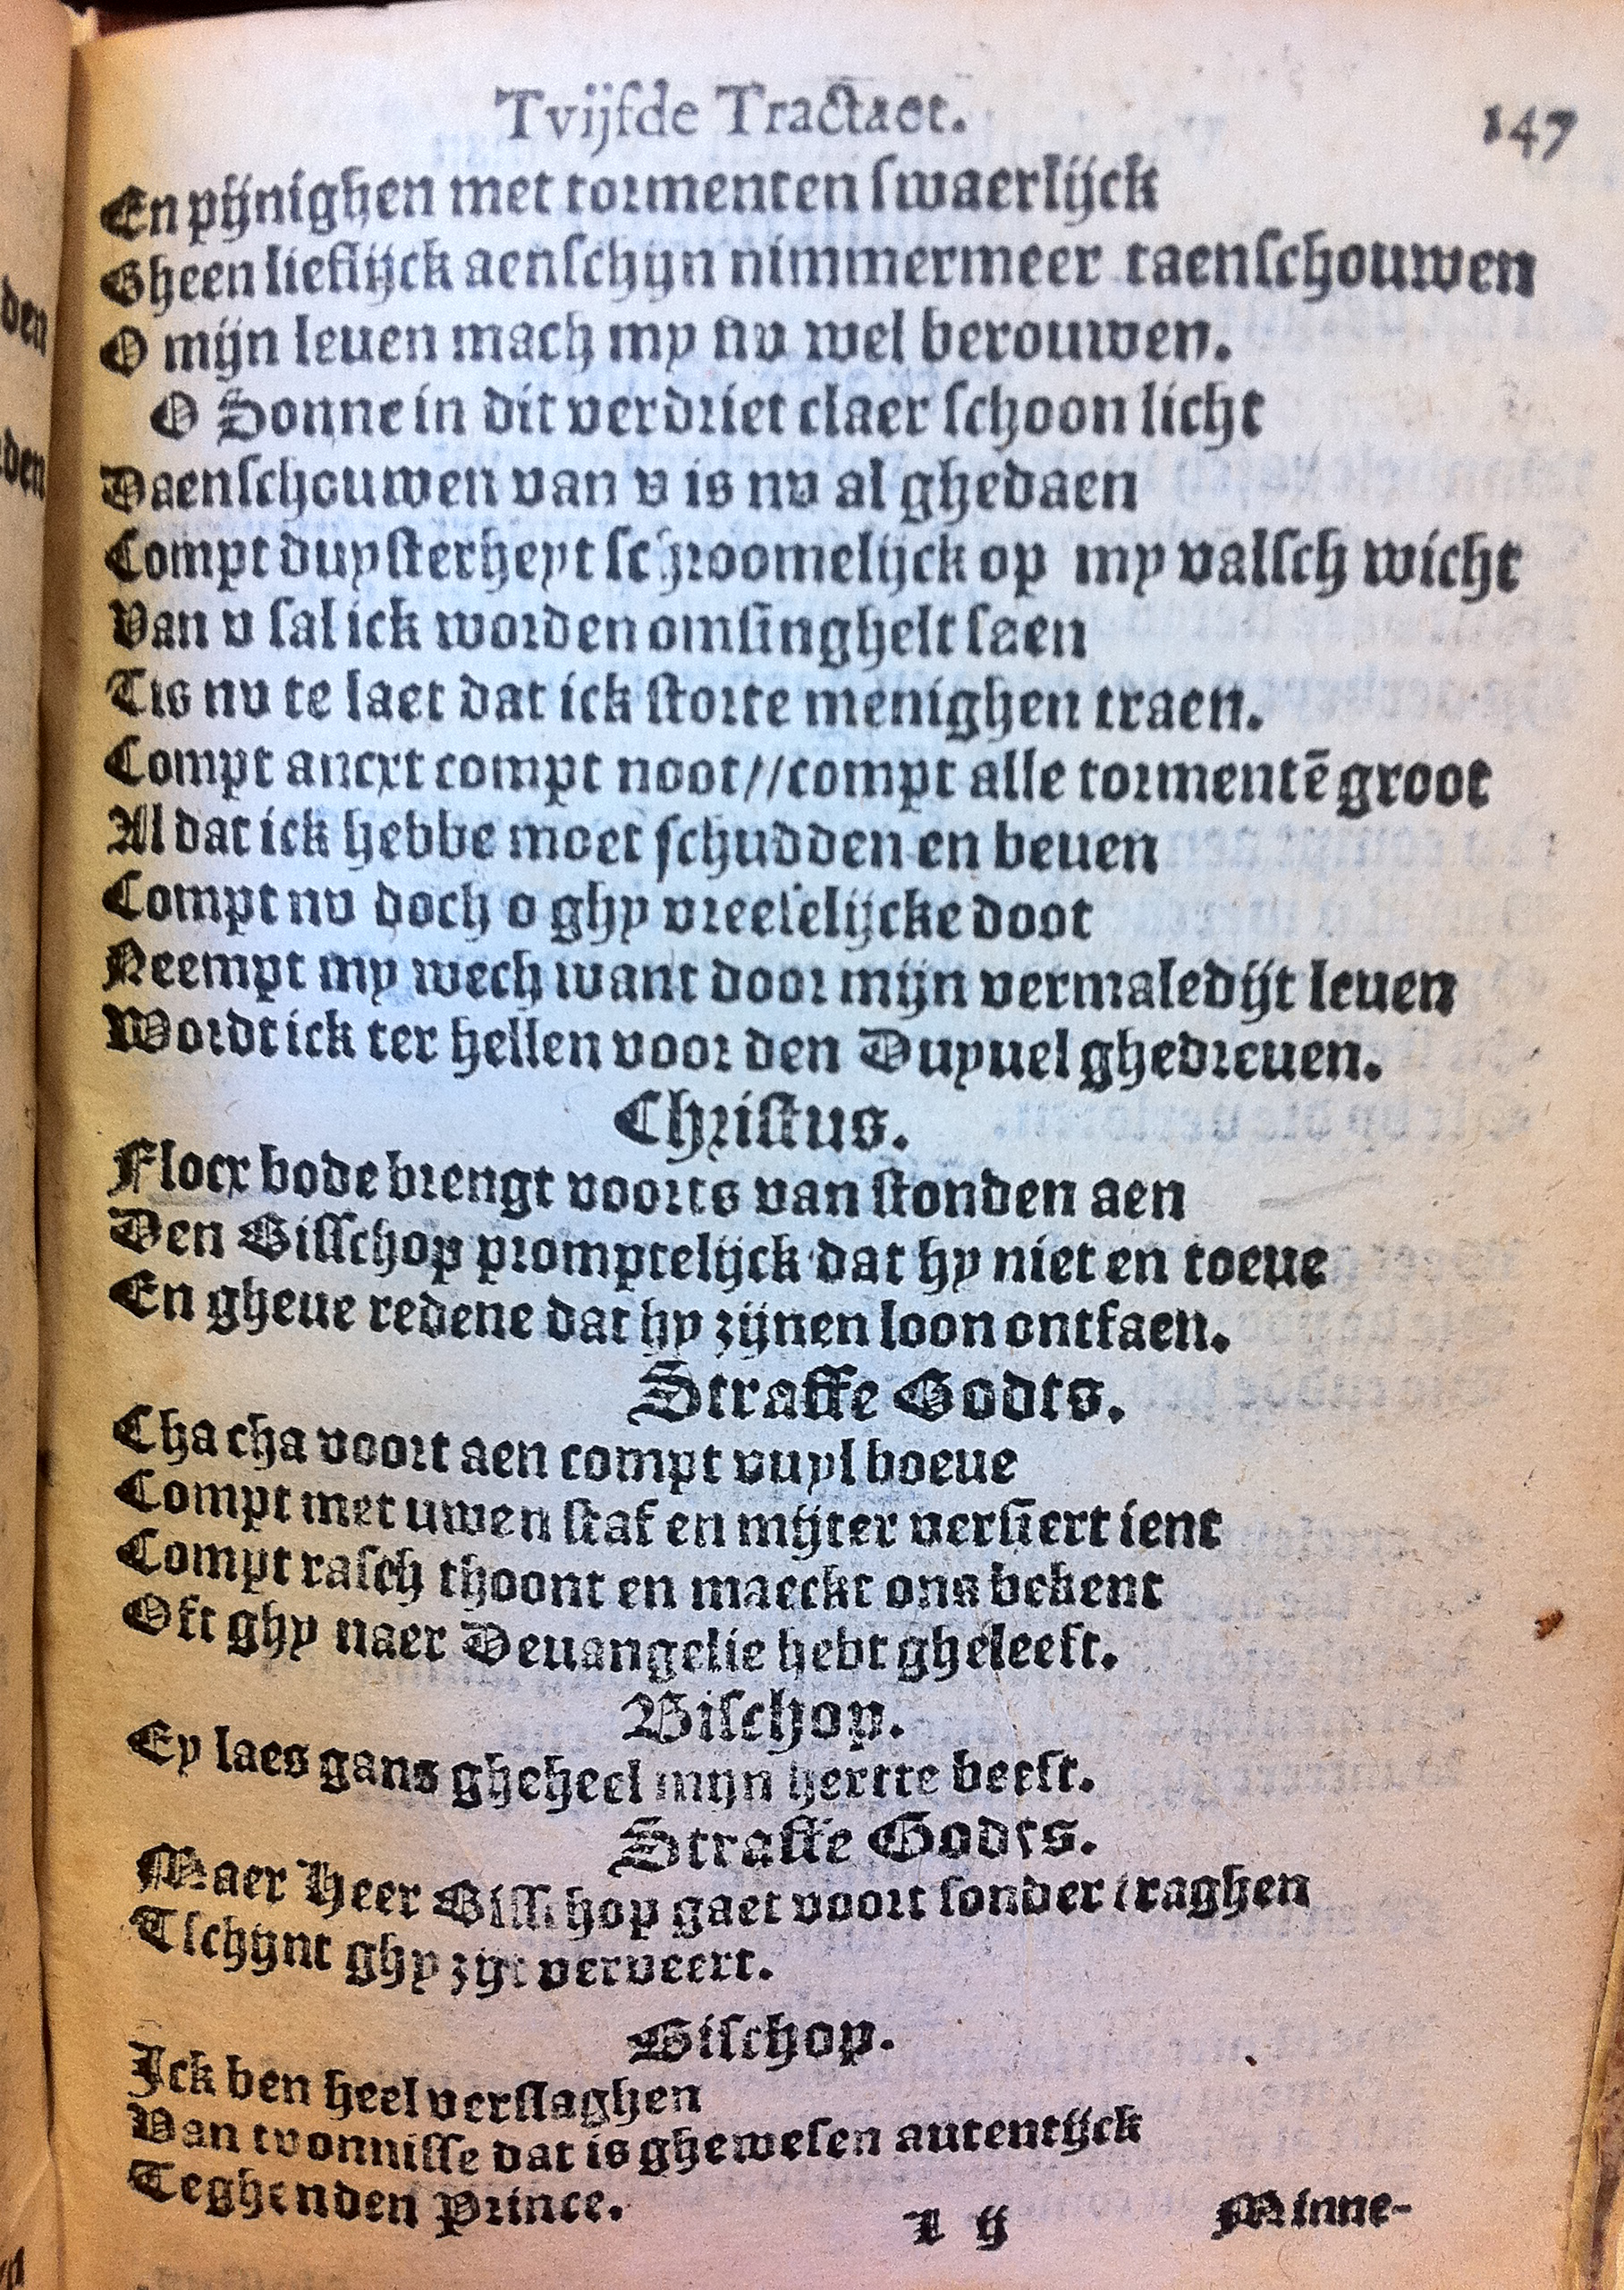 Tvijfde Tractaet. 147
En pijnighen met tormenten swaerlijck
Gheen lieflijck aenschijn nimmermeer taenschouwen
O mijn leuen mach my nv wel berouwen.
O Sonne in dit verdriet claer schoon licht
Daenschouwen van v is nv al ghedaen
Compt duysterheyt schroomelijck op my valsch wicht
Van v sal ick worden omsinghelt saen
Tis nv te laet dat ick storte menighen traen.
Compt ancxt compt noot//compt alle tormentē groot
Al dat ick hebbe moet schudden en beuen
Compt nv doch o ghy vreeselijcke doot
Neempt my wech want door mijn vermaledijt leuen
Wordt ick ter hellen voor den Duyuel ghedreuen.
Christus.
Flocx bode brengt voorts van stonden aen
Den Bisschop promptelijck dat hy niet en toeue
En gheue redene dat hy zijnen loon ontfaen.
Straffe Godts.
Cha cha voort aen compt vuyl boeue
Compt met uwen staf en mijter versiert ient
Compt rasch thoont en maeckt ons bekent
Oft ghy naer Deuangelie hebt gheleeft.
Bischop.
Ey laes gans gheheel mijn hertte beeft.
Straffe Godts.
Maer Heer Bisschop gaet voort sonder traghen
Tschijnt ghy zijt verveert.
Bischop.
Ick ben heel verslaghen
Van tvonnisse dat is ghewesen autentijck
Teghen den Prince.
I ij Minne-
den
den